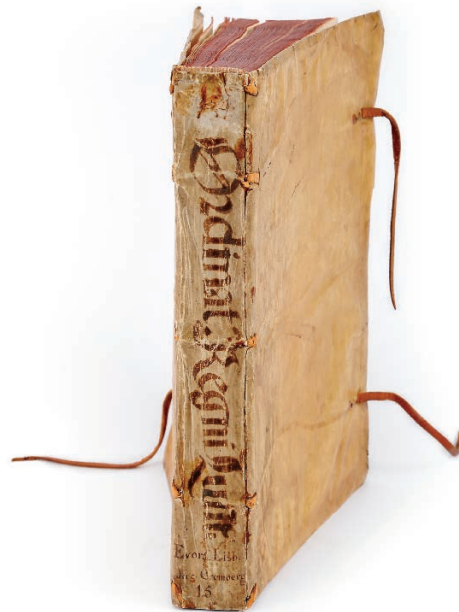 Ordinat. Regni Lusit.
Evorȩ Lisb.
Jacȩ Cromberg
15